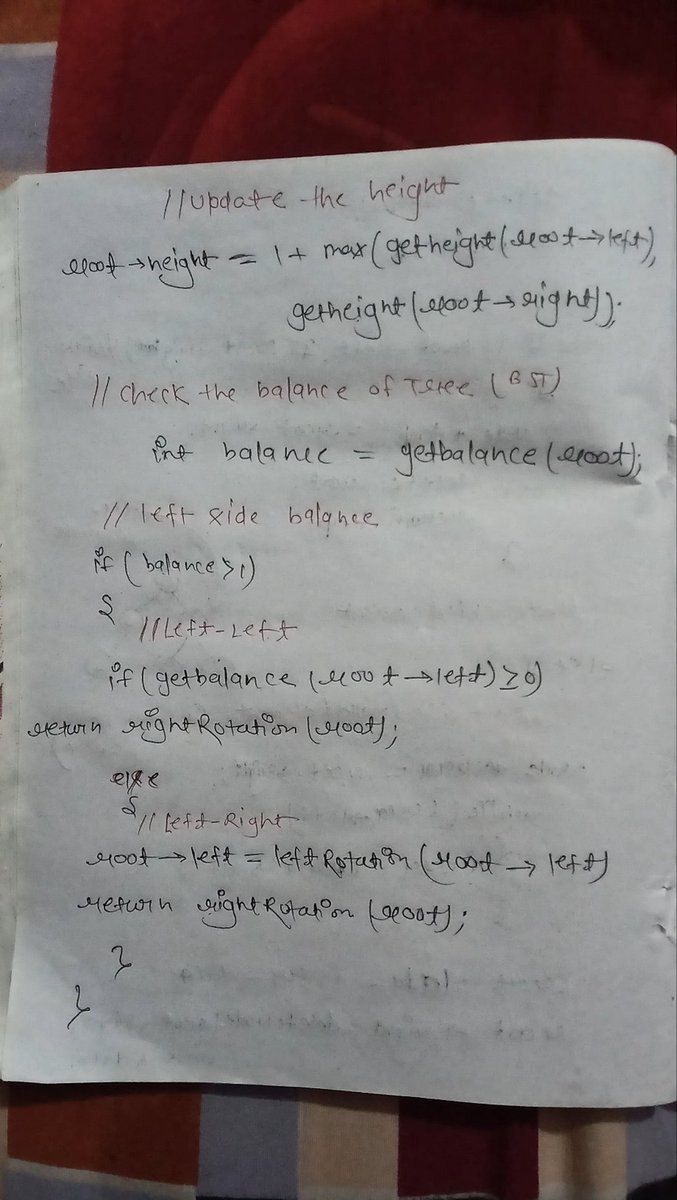 //update the height
root→height = 1+ max(getheight(root→left),
getheight(root→right));
//check the balance of Tree (BST)
int balance = getbalance(root);
//left side balance
if(balance>1)
{
//Left-Left
if(getbalance(root→left)≥0)
return rightRotation(root);
else
{
//Left-Right
root→left = leftRotation(root→left)
return rightRotation(root);
}
}